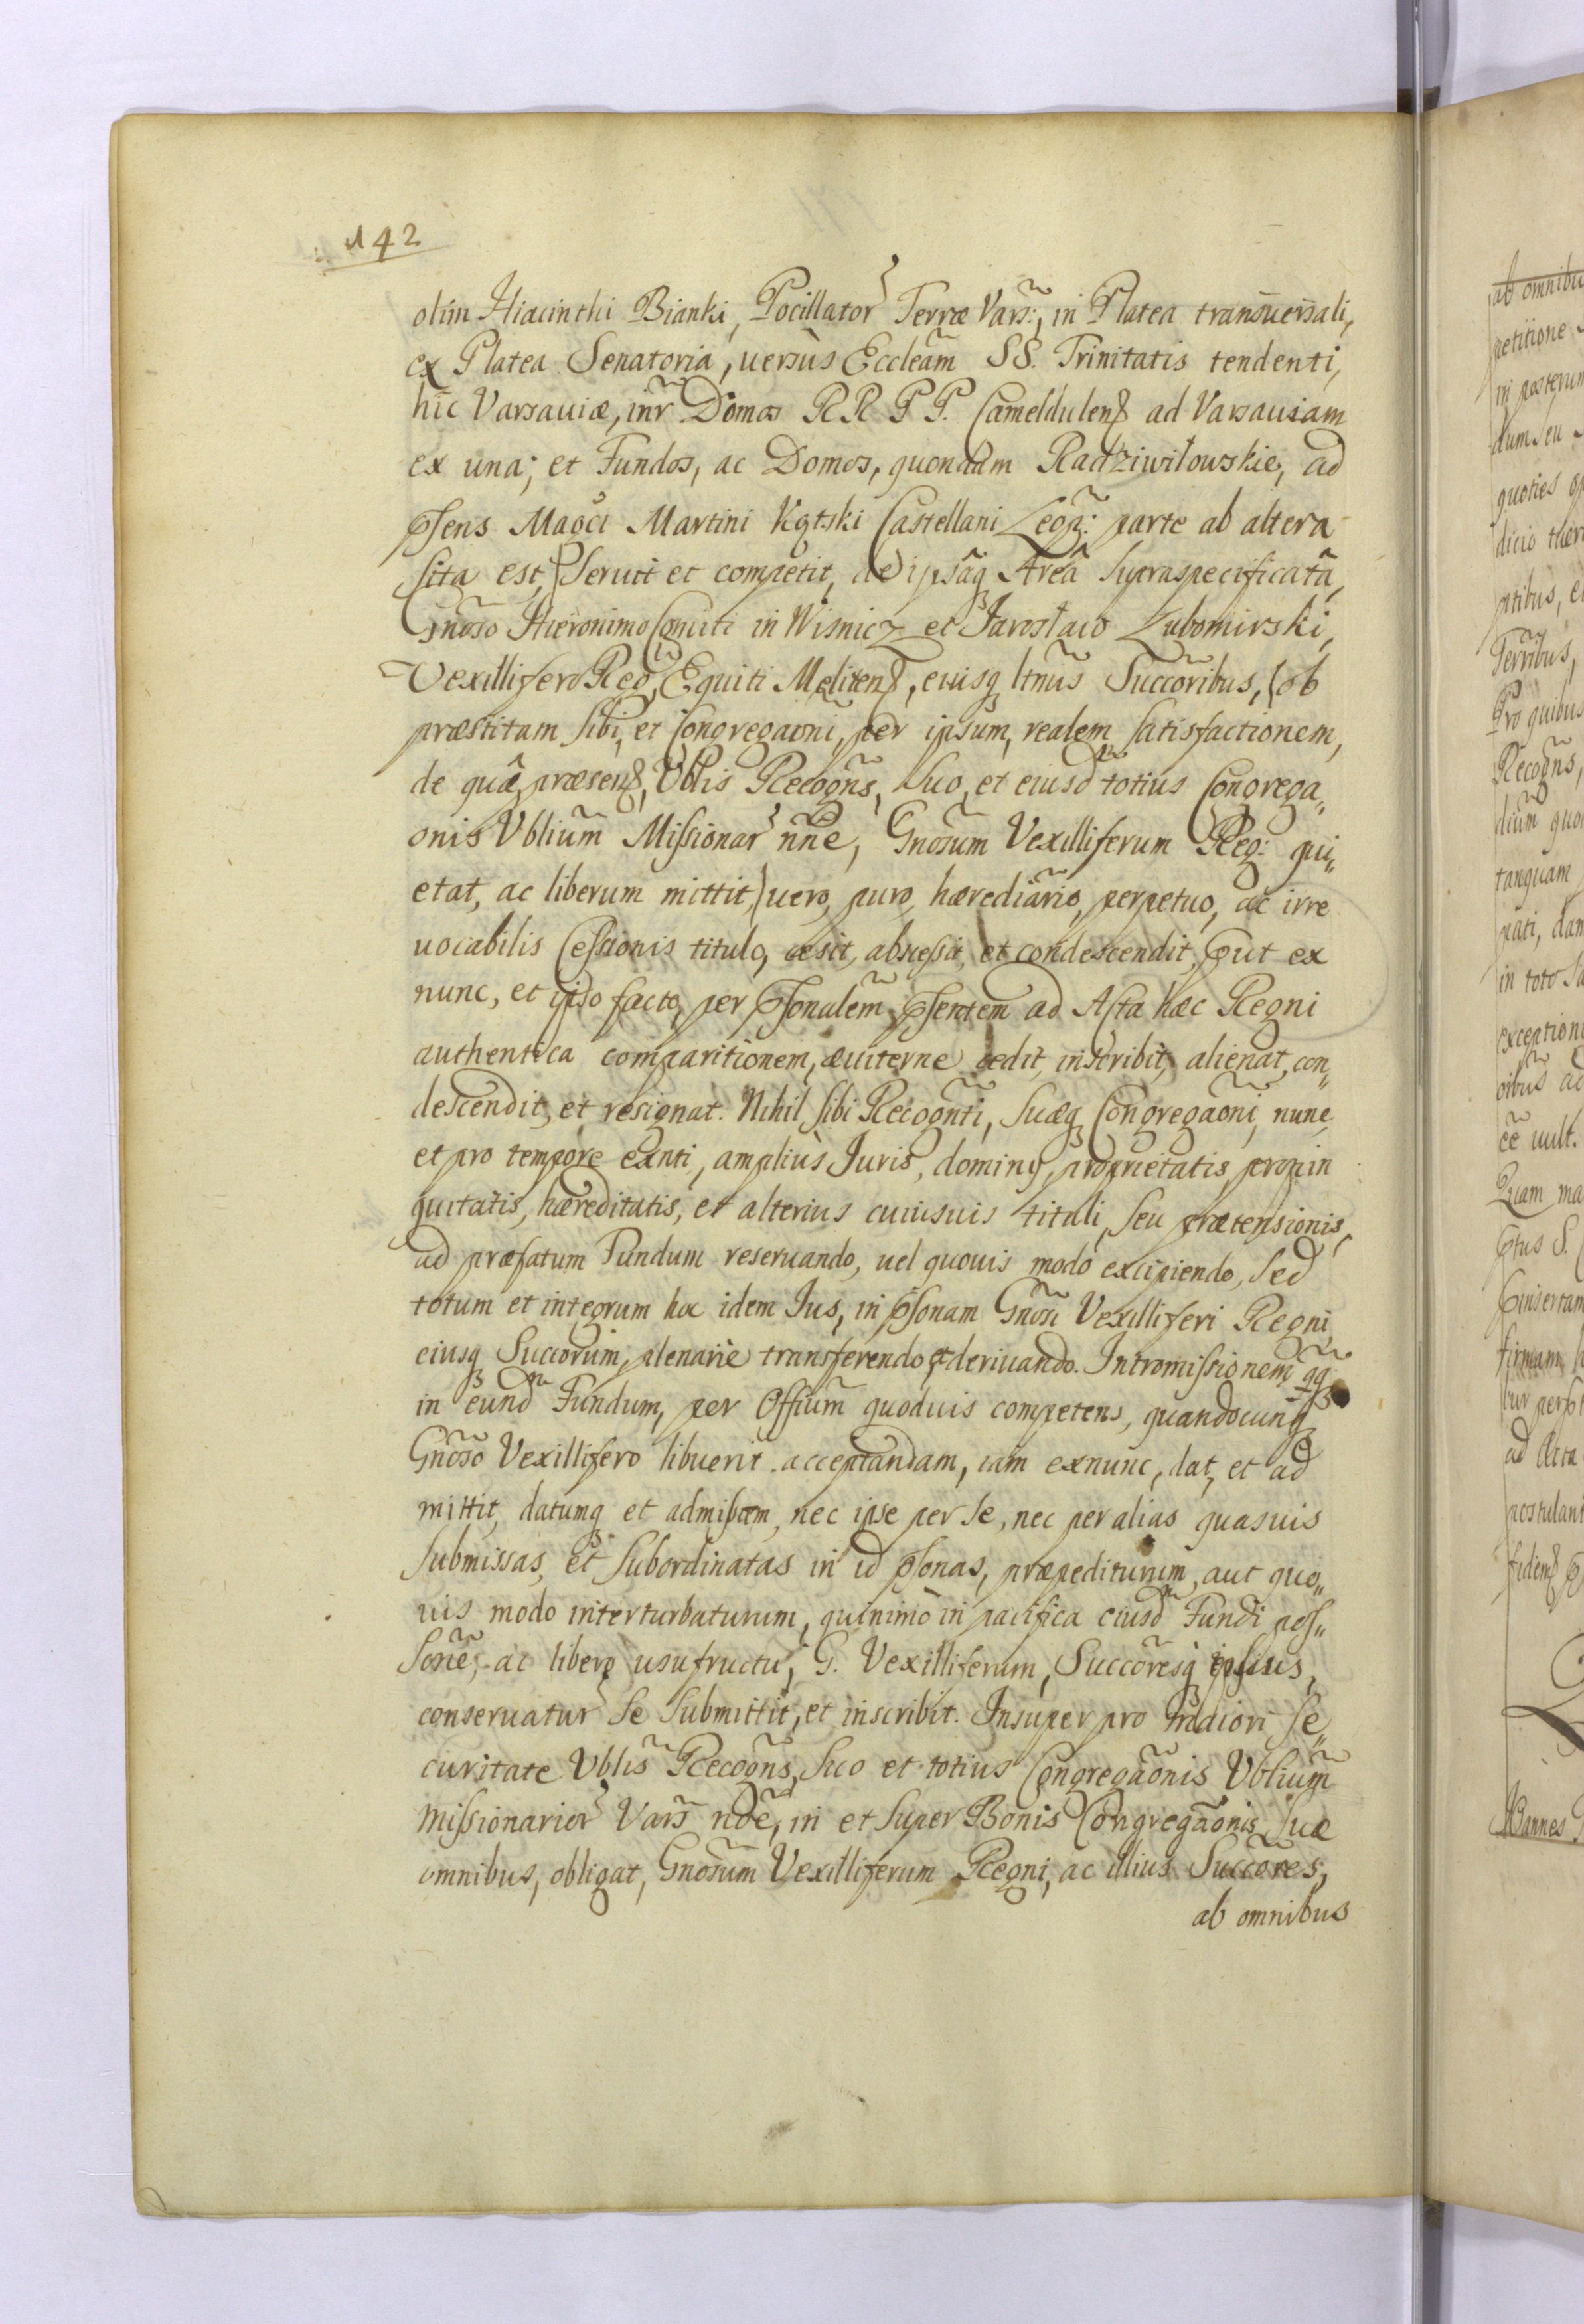 142
olim Hiacinthi Bianki, Pocillator Terræ Vars:, in Platea transuersali,
ex Platea Senatoria, uersùs Eccleãm SS. Trinitatis tendenti,
hìc Varsauiæ, inr̃ Domos RRPP. Cameldulens ad Varsauiam
ex una; et Fundos, ac Domos, quondam Radziwiłowskie, ad
psens Magci Martini Kątski Castellani Leop: parte ab altera
sita est, seruit et competit, de ipsâq Areâ supraspecificatâ,
Gnõso Hieronimo Comiti in Wisnicz et Jarosław Lubomirski,
Vexillifero Reg, Equiti Melitens, eiusq ltmis Succoribus, (ob
præstitam sibi, et Congregaoni, per ipsum, realem satisfactionem,
de quâ, præsens, Vblis Recogñs, suo, et eiusd totius Congrega„
onis Vblium̃ Missionar nñe, Gnosum Vexilliferum Reg: qui„
etat, ac liberum mittit,) uero, puro, hærediãrio, perpetuo, ac irre
uocabilis Cessionis titulo, cæsit, abscessit, et condescendit, put ex
nunc, et ipso facto, per psonalem, psentem ad Acta hæc Regni
authentica comparitionem, æuiterne cedit, inscribit, alienat, con„
descendit, et resignat. Nihil sibi Recognti, suæq Congregaoni, nunc,
et pro tempore exñti, ampliùs Juris, dominy, proprietatis, propin
quitatis, hæreditatis, et alterius cuiusuis tituli, seu prætensionis,
ad præfatum Fundum reseruando, uel quouis modo excipiendo, sed
totum et integrum hoc idem Ius, in psonam Gnõsi Vexilliferi Regni,
eiusq Succorum, plenariè transferendo et deriuando. Intromissionem qq
in eund Fundum, per Offium quoduis competens, quandocunq
Gnõso Vexillifero libuerit acceptandam, iam exnunc, dat, et ad
mittit, datumq et admissam, nec ipse per se, nec per alias quasuis
submissas, et subordinatas in id psonas, præpediturum, aut quo„
uis modo interturbaturum, quinimò in pacifica eiusd Fundi pos„
sone, ac libero usufructu, G. Vexilliferum, Succoresq ipsius,
conseruatur se submittit, et inscribit. Insuper pro maiori se„
curitate Vblis Recogñs, suo et totius Congregaõnis Vblium̃
Missionarior Vars nõe, in et super Bonis Congregãonis suæ
omnibus, obligat, Gnosum Vexilliferum Regni, ac illius Succores,
ab omnibus